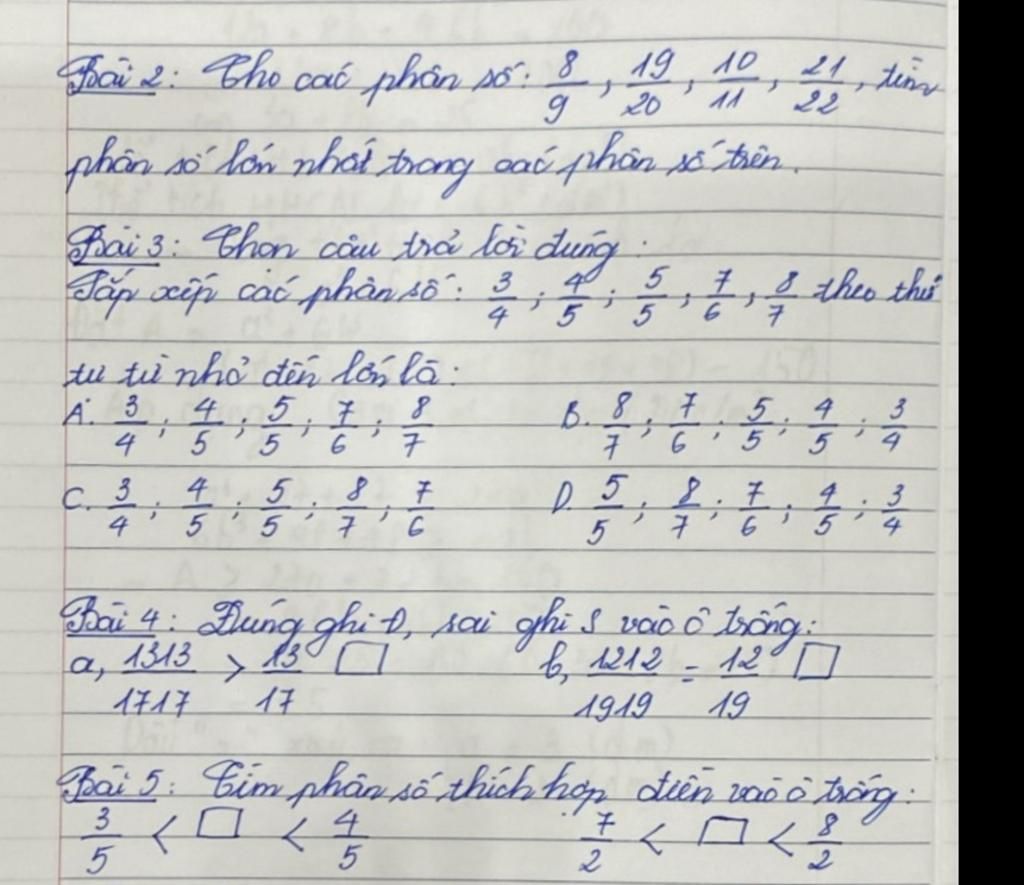 Bài 2: Cho các phân số: 8/9, 19/20, 10/11, 21/22, tìm
phân số lớn nhất trong các phân số trên.
Bài 3: Chọn câu trả lời đúng:
Sắp xếp các phân số: 3/4; 4/5; 5/5; 7/6; 8/7 theo thứ
tự từ nhỏ đến lớn là:
A. 3/4; 4/5; 5/5; 7/6; 8/7 B. 8/7; 7/6; 5/5; 4/5; 3/4
C. 3/4; 4/5; 5/5; 8/7; 7/6 D. 5/5; 8/7; 7/6; 4/5; 3/4
Bài 4: Đúng ghi Đ, sai ghi S vào ô trống:
a, 1313/1717 > 13/17 □ b, 1212/1919 = 12/19 □
Bài 5: Tìm phân số thích hợp điền vào ô trống:
3/5 < □ < 4/5 7/2 < □ < 8/2